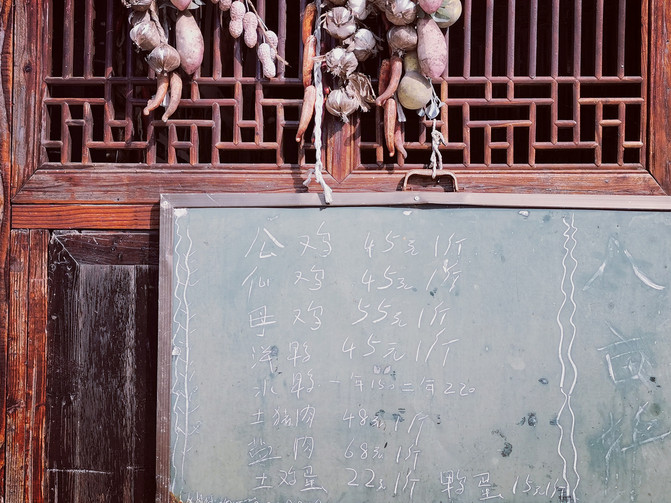 公鸡 45元1斤
仙鸡 45元1斤
母鸡 55元1斤
洋鸭 45元1斤
水鸭 一年18元二年22元
土猪肉 48元1斤
盐肉 68元1斤
土鸡蛋 22元1斤 鸭蛋 15元1斤